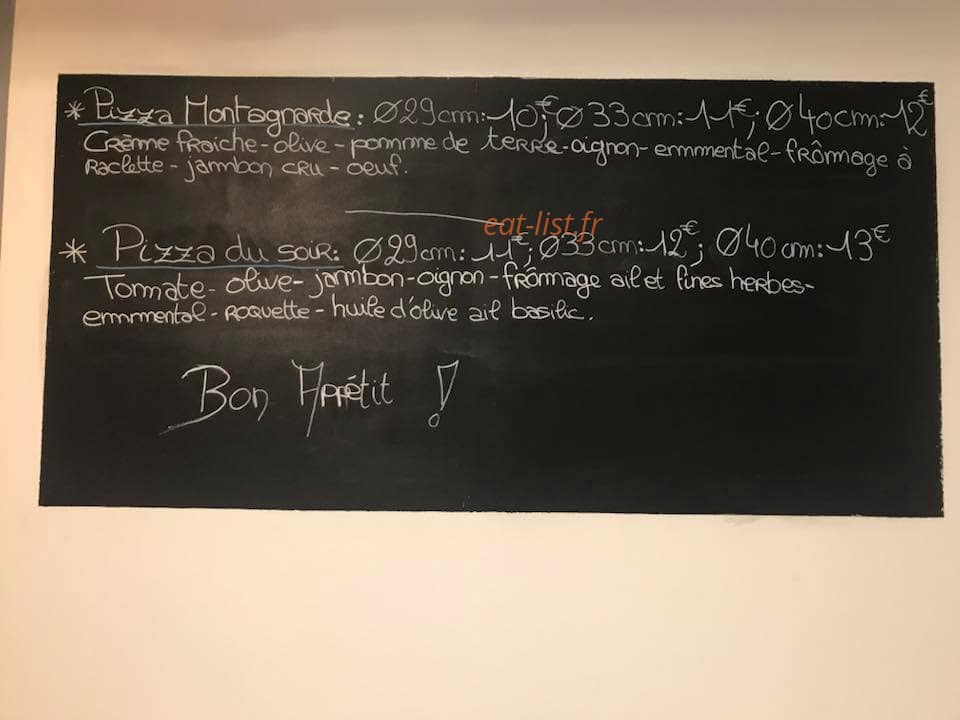 * Pizza Montagnarde: Ø29cm:10€; Ø33cm:11€; Ø40cm:12€
Crème fraiche-olive-pomme de terre-oignon-emmental-frômage à
raclette-jambon cru-oeuf.
eat-list.fr
* Pizza du soir: Ø29cm:11€; Ø33cm:12€; Ø40cm:13€
Tomate-olive-jambon-oignon-frômage ail et fines herbes-
emmental-roquette-huile d'olive ail basilic.
Bon Appétit !